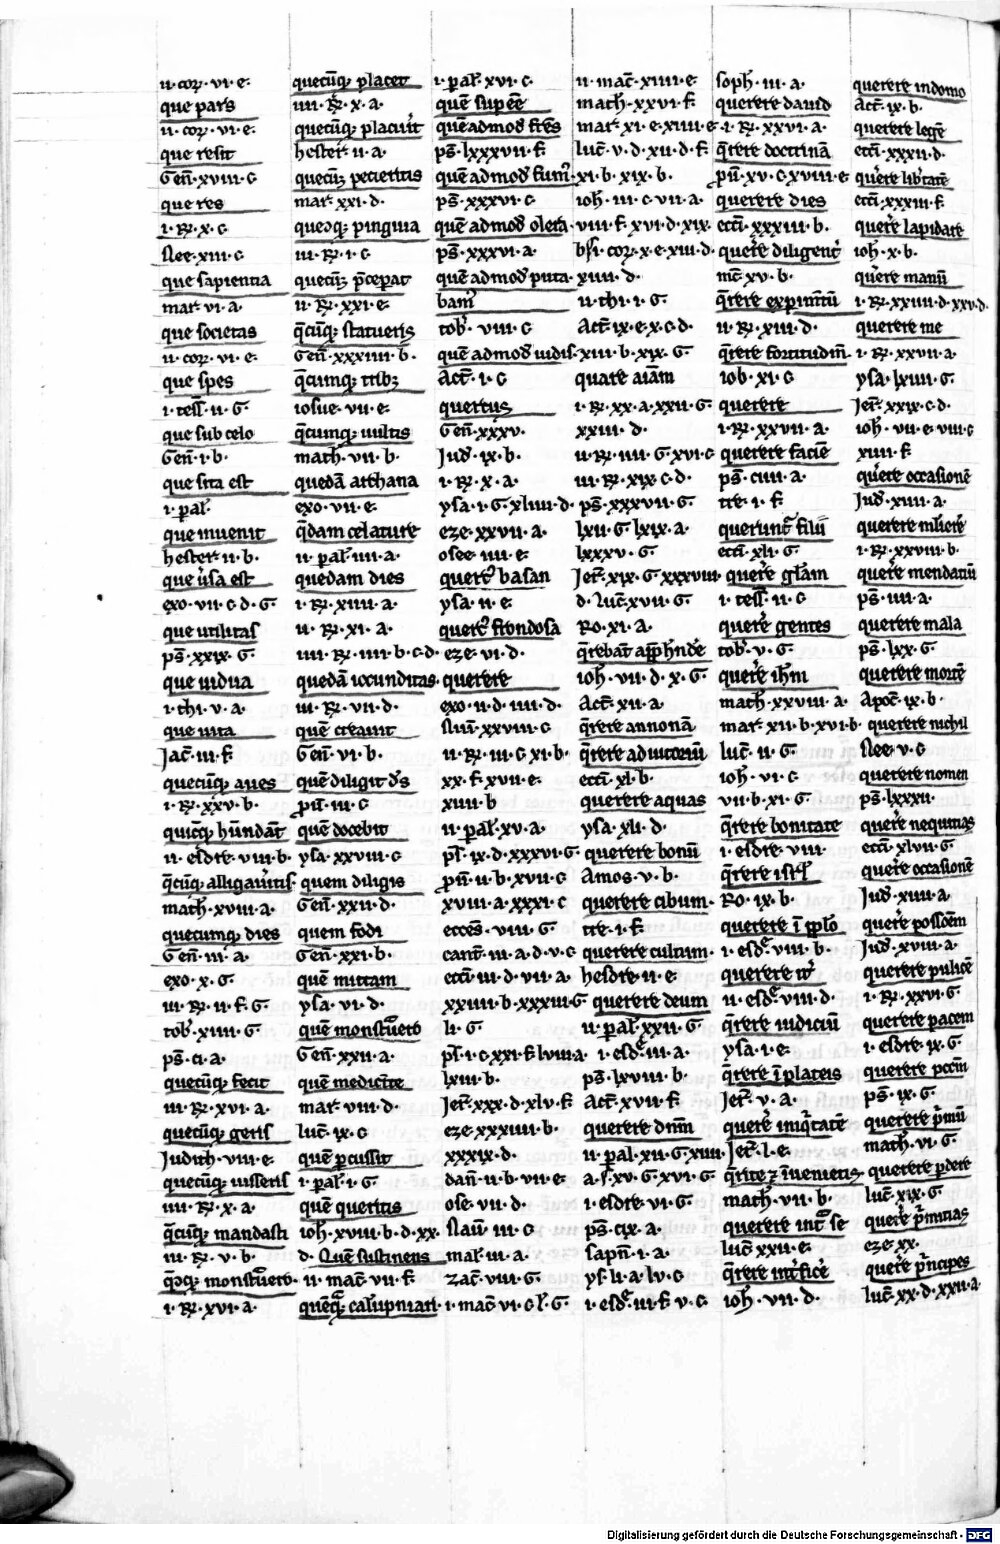 ii·cor̄·vi·e·
que pars
ii·cor̄·vi·e·
que resit
Gen̄·xviii·c
que res
i·R̄·x·c
Nee·xiii·c
que sapientia
mar̄·vi·a·
que societas
ii·cor̄·vi·e·
que spes
i·tess̄·ii·G·
que sub celo
Gen̄·i·b·
que sita est
i·pal̄·
que invenit
hester̄·ii·b·
que u̓sa est
exo·vii·c·d·G·
que utilitas
ps̄·xxix·G·
que vidua
i·thi·v·a·
que vita
Jac̄·iii·f
quecūqꝫ aves
i·R̄·xxv·b·
ii·esdre·viii·b·
q̄cūqꝫ alligav̓itis·
math̄·xviii·a·
quecumqꝫ dies
Gen̄·iii·a·
exo·x·G·
iii·R̄·ii·f·G·
tob̄·xiiii·G·
ps̄·ci·a·
quecūqꝫ fecit
iii·R̄·xvi·a·
quecūqꝫ geris
Judith·viii·e·
quecūqꝫ iusseris
iiii·R̄·x·a·
q̄cūqꝫ mandasti
iii·R̄·v·b·
i·R̄·xvi·a·
quecūqꝫ placet
iiii·R̄·x·a·
quecūqꝫ placuit
hester̄·ii·a·
quecūqꝫ pecieritis
mar̄·xxi·d·
pinguia
iii·R̄·i·c
quecūqꝫ p̄cepat
ii·R̄·xxi·e·
q̄cūqꝫ statueris
Gen̄·xxxiiii·b·
q̄cumqꝫ tribꝫ
iosue·vii·e·
q̄cumqꝫ vultis
math·vii·b·
quedā archana
exo·vii·e·
q̄dam celature
ii·pal̄·iiii·a·
quedam dies
i·R̄·xiiii·a·
ii·R̄·xi·a·
iiii·R̄·iiii·b·c·d·
quedā iocunditas
iii·R̄·vii·d·
quē creavit
Gen̄·vi·b·
quē diligit d̄s
p̄u·iii·c
quē docebit
ysa·xxviii·c
quem diligis
Gen̄·xxii·d·
quem fodi
Gen̄·xxi·b·
quē mittam
ysa·vi·d·
quē monstrav̓ero
Gen̄·xxii·a·
quē medicine
mar̄·viii·d·
luc̄·ix·c
quē p̄cussit
i·pal̄·i·G·
quē queritis
ioh̄·xviii·b·d·xx·
d·Quē sustinens
ii·mac̄·vii·f·
i·pal̄·xvi·c·
quē supēe
quēadmod̄ fr̄es
ps̄·lxxxvii·f·
quēadmod̄ fum̓·
ps̄·xxxvi·c·
quē admod̄ olera·
ps̄·xxxvi·a·
quē admod̄ puta·
bam̓
tob̄·viii·c
quē admod̄ vidis·
Act̄·i·c
quercus
Gen̄·xxxv·
Jud̄·ix·b·
i·R̄·x·a·
ysa·i·G·xliiii·d·
eze·xxvii·a·
osee·iiii·e·
querc̓ basan
ysa·ii·e·
querc̓ frondosa
eze·vi·d·
querere
exo·ii·d·iiii·d·
Nuū·xxviii·c
ii·R̄·iii·c·xi·b·
xx·f·xvii·e·
xviii·b
ii·pal̄·xv·a·
ps̄·ix·d·xxxvi·G·
p̄u·ii·b·xvii·c
xviii·a·xxxi·c
ecces̄·viii·G·
cant̄·iii·a·d·v·c
ecc̄i·iii·d·vii·a·
xxiiii·b·xxxiii·G
li·G·
ps̄·i·c·xxi·f·lviii·a·
lxiii·b·
Jer̄·xxx·d·xlv·f·
eze·xxxiiii·b·
xxxix·d·
dan̄·ii·b·vii·e·
ose·vii·d·
Naū·iii·c
mal̄·iii·a·
zac̄·viii·G·
i·mac̄·vi·c
ii·mac̄·xiiii·e·
math̄·xxvi·f·
mar̄·xi·e·xiiii·e·
luc̄·v·d·xii·d·f·
xi·b·xix·b·
ioh̄·iii·c·vii·a·
viii·f·xvi·d·xix·
xiiii·d·
ii·thi·i·G·
Act̄·ix·e·x·c·d·
xiii·b·xix·G·
querere aīam
i·R̄·xx·a·xxii·G·
xxiii·d·
ii·R̄·iiii·G·xvi·c
iii·R̄·xix·c·d·
ps̄·xxxvii·G·
lxii·G·lxix·a·
lxxxv·G·
Jer̄·xix·G·xxxviii·
d·Luc̄·xvii·G·
Ro·xi·a·
q̄rebāt app̄h̄nde
ioh̄·vii·d·x·G·
Act̄·xii·a·
q̄rere annonā
luc̄·ii·G·
ecc̄i·xl·b·
querere aquas
ysa·xli·d·
querere bonū
Amos·v·b·
querere cibum·
tre·i·f·
querere cultum·
hesdre·ii·e·
querere deum
ii·pal̄·xxii·G·
i·esd̄·iii·a·
ps̄·lxviii·b·
Act̄·xvii·f·
querere dn̄m
ii·pal̄·xii·G·xiiii·
a·f·xv·G·xvi·G·
i·esdre·vi·G·
ps̄·cix·a·
sapn̄·i·a·
ys·li·a·lv·c
i·esd̄·iii·f·v·c·
soph̄·iii·a·
querere david
i·R̄·xxvi·a·
q̄rere doctrinā
p̄u·xv·c·xviii·e·
querere dies
ecc̄i·xxxiii·b·
quer̓e diligent̓
mc̄·xv·b·
q̄rere expim̄tū
ii·R̄·xiii·d·
q̄rere fortitudin̄·
iob·xi·c
querere
i·R̄·xxvii·a·
querere faciē
ps̄·ciiii·a·
tre·i·f·
querunt̄ filii
ecc̄i·xli·G·
quer̓e gl̄am
i·tess̄·ii·c
quer̓e gentes
tob̄·v·G·
quer̓e ih̄m
math̄·xxviii·a·
mar̄·xii·b·xvi·b·
ioh̄·vi·c
vii·b·xi·G·
q̄rere bonitate
i·esdre·viii·
q̄rere isrl̄
Ro·ix·b·
querere ī pp̄lo
i·esd̄·viii·b·
querere it̓
ii·esd̄·viii·d·
q̄rere iudiciū
ysa·i·e·
q̄rere ī plateis
Jer̄·v·a·
quer̓e iniq̓tatē
Jer̄·l·e·
q̄rite ⁊ īvenietis
math̄·vii·b·
querere int̓ se
luc̄·xxii·e·
q̄rere int̓fic̓e
ioh̄·vii·d·
querere in domo
Act̄·ix·b·
querere legē
ecc̄i·xxxii·d·
quer̓e lib̓tatē
ecc̄i·xxxiii·f·
quer̓e lapidare
ioh̄·x·b·
quer̓e manū
i·R̄·xxiiii·d·xxv·d·
querere me
i·R̄·xxvii·a·
ysa·lxiiii·G·
Jer̄·xxix·c·d·
ioh̄·vii·e·viii·c
xiiii·f·
quer̓e occasionē
Jud̄·xiiii·a·
querere ml̓ierē
i·R̄·xxviii·b·
quer̓e mendatiū
ps̄·iiii·a·
querere mala
ps̄·lxx·G·
querere mortē
Apoc̄·ix·b·
querere nichil
Nee·v·c
querere nomen
ps̄·lxxxii·
quer̓e nequitias
ecc̄i·xlvii·G·
quer̓e occasionē
Jud̄·xiiii·a·
quer̓e possōem
Jud̄·xviii·a·
querere pulicē
i·R̄·xxvi·G·
querere pacem
i·esdre·ix·G·
querere pccm̄
ps̄·ix·G·
querere p̓mū
math̄·vi·G·
querere p̄dere
luc̄·xix·G·
quer̓e p̓mitias
eze·xx·
quer̓e p̓ncipes
luc̄·xx·d·xxii·a·
Digitalisierung gefördert durch die Deutsche Forschungsgemeinschaft - DFG